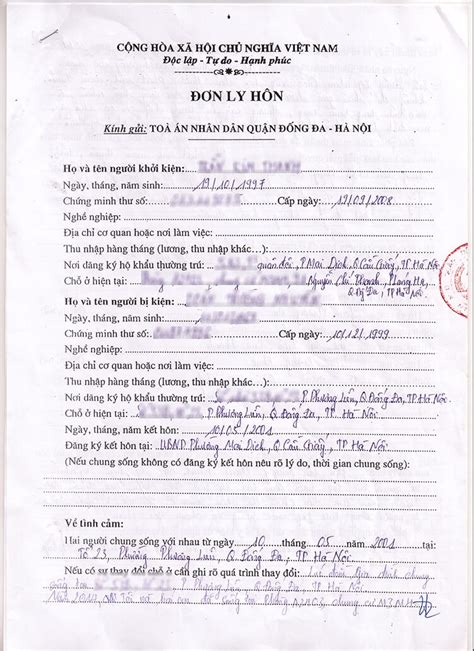 CỘNG HÒA XÃ HỘI CHỦ NGHĨA VIỆT NAM
Độc lập - Tự do - Hạnh phúc
ĐƠN LY HÔN
Kính gửi: TOÀ ÁN NHÂN DÂN QUẬN ĐỐNG ĐA - HÀ NỘI
Họ và tên người khởi kiện:
Ngày, tháng, năm sinh: 19/10/1997
Chứng minh thư số: Cấp ngày: 19/09/2008
Nghề nghiệp:
Địa chỉ cơ quan hoặc nơi làm việc:
Thu nhập hàng tháng (lương, thu nhập khác…):
Nơi đăng ký hộ khẩu thường trú: quân đội, P. Mai Dịch, Q. Cầu Giấy, TP Hà Nội
Chỗ ở hiện tại: Nguyễn Chí Thanh, P Láng Hạ,
Q. Đống Đa, TP Hà Nội
Họ và tên người bị kiện:
Ngày, tháng, năm sinh:
Chứng minh thư số: Cấp ngày: 10/12/1999
Nghề nghiệp:
Địa chỉ cơ quan hoặc nơi làm việc:
Thu nhập hàng tháng (lương, thu nhập khác):
Nơi đăng ký hộ khẩu thường trú: P. Phương Liên, Q. Đống Đa, TP. Hà Nội
Chỗ ở hiện tại: P. Phương Liên, Q. Đống Đa, TP. Hà Nội
Ngày, tháng, năm kết hôn: 10/05/2001
Đăng ký kết hôn tại: UBND Phường Mai Dịch, Q Cầu Giấy, TP Hà Nội
(Nếu chung sống không có đăng ký kết hôn nêu rõ lý do, thời gian chung sống):
Về tình cảm:
Hai người chung sống với nhau từ ngày 10 tháng 05 năm 2001 tại:
Tổ 23, Phường Phương Liên, Q. Đống Đa, TP Hà Nội
Nếu có sự thay đổi chỗ ở cần ghi rõ quá trình thay đổi: Lúc đầu gia đình chung
sống Phường Liên, Q Đống Đa, TP Hà Nội
Năm